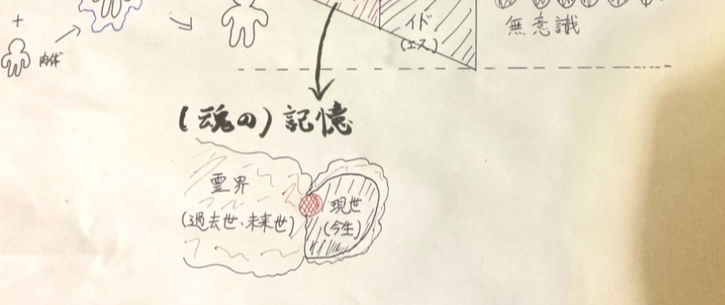 +
肉体
イド
(エス)
無意識
(魂の)記憶
霊界
(過去世、未来世)
現世
(今生)